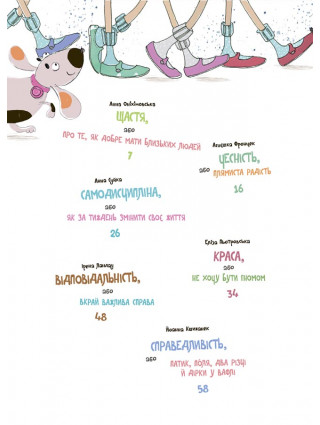 Анна Онихімовська
ЩАСТЯ,
або
ПРО ТЕ, ЯК ДОБРЕ МАТИ БЛИЗЬКИХ ЛЮДЕЙ
7
Агнешка Францук
ЧЕСНІСТЬ,
або
ПЛЯМИСТА РАДІСТЬ
16
Анна
САМОДИСЦИПЛІНА,
або
ЯК ЗА ТИЖДЕНЬ ЗМІНИТИ СВОЄ ЖИТТЯ
26
Еліза Пьотровська
КРАСА,
або
НЕ ХОЧУ БУТИ ГНОМОМ
34
ВІДПОВІДАЛЬНІСТЬ,
або
ВКРАЙ ВАЖЛИВА СПРАВА
48
Йоанна
СПРАВЕДЛИВІСТЬ,
або
ПАТИК, ПОЛЯ, ДВА РІЗЦІ
Й ДІРКИ У ВАФЛІ
58